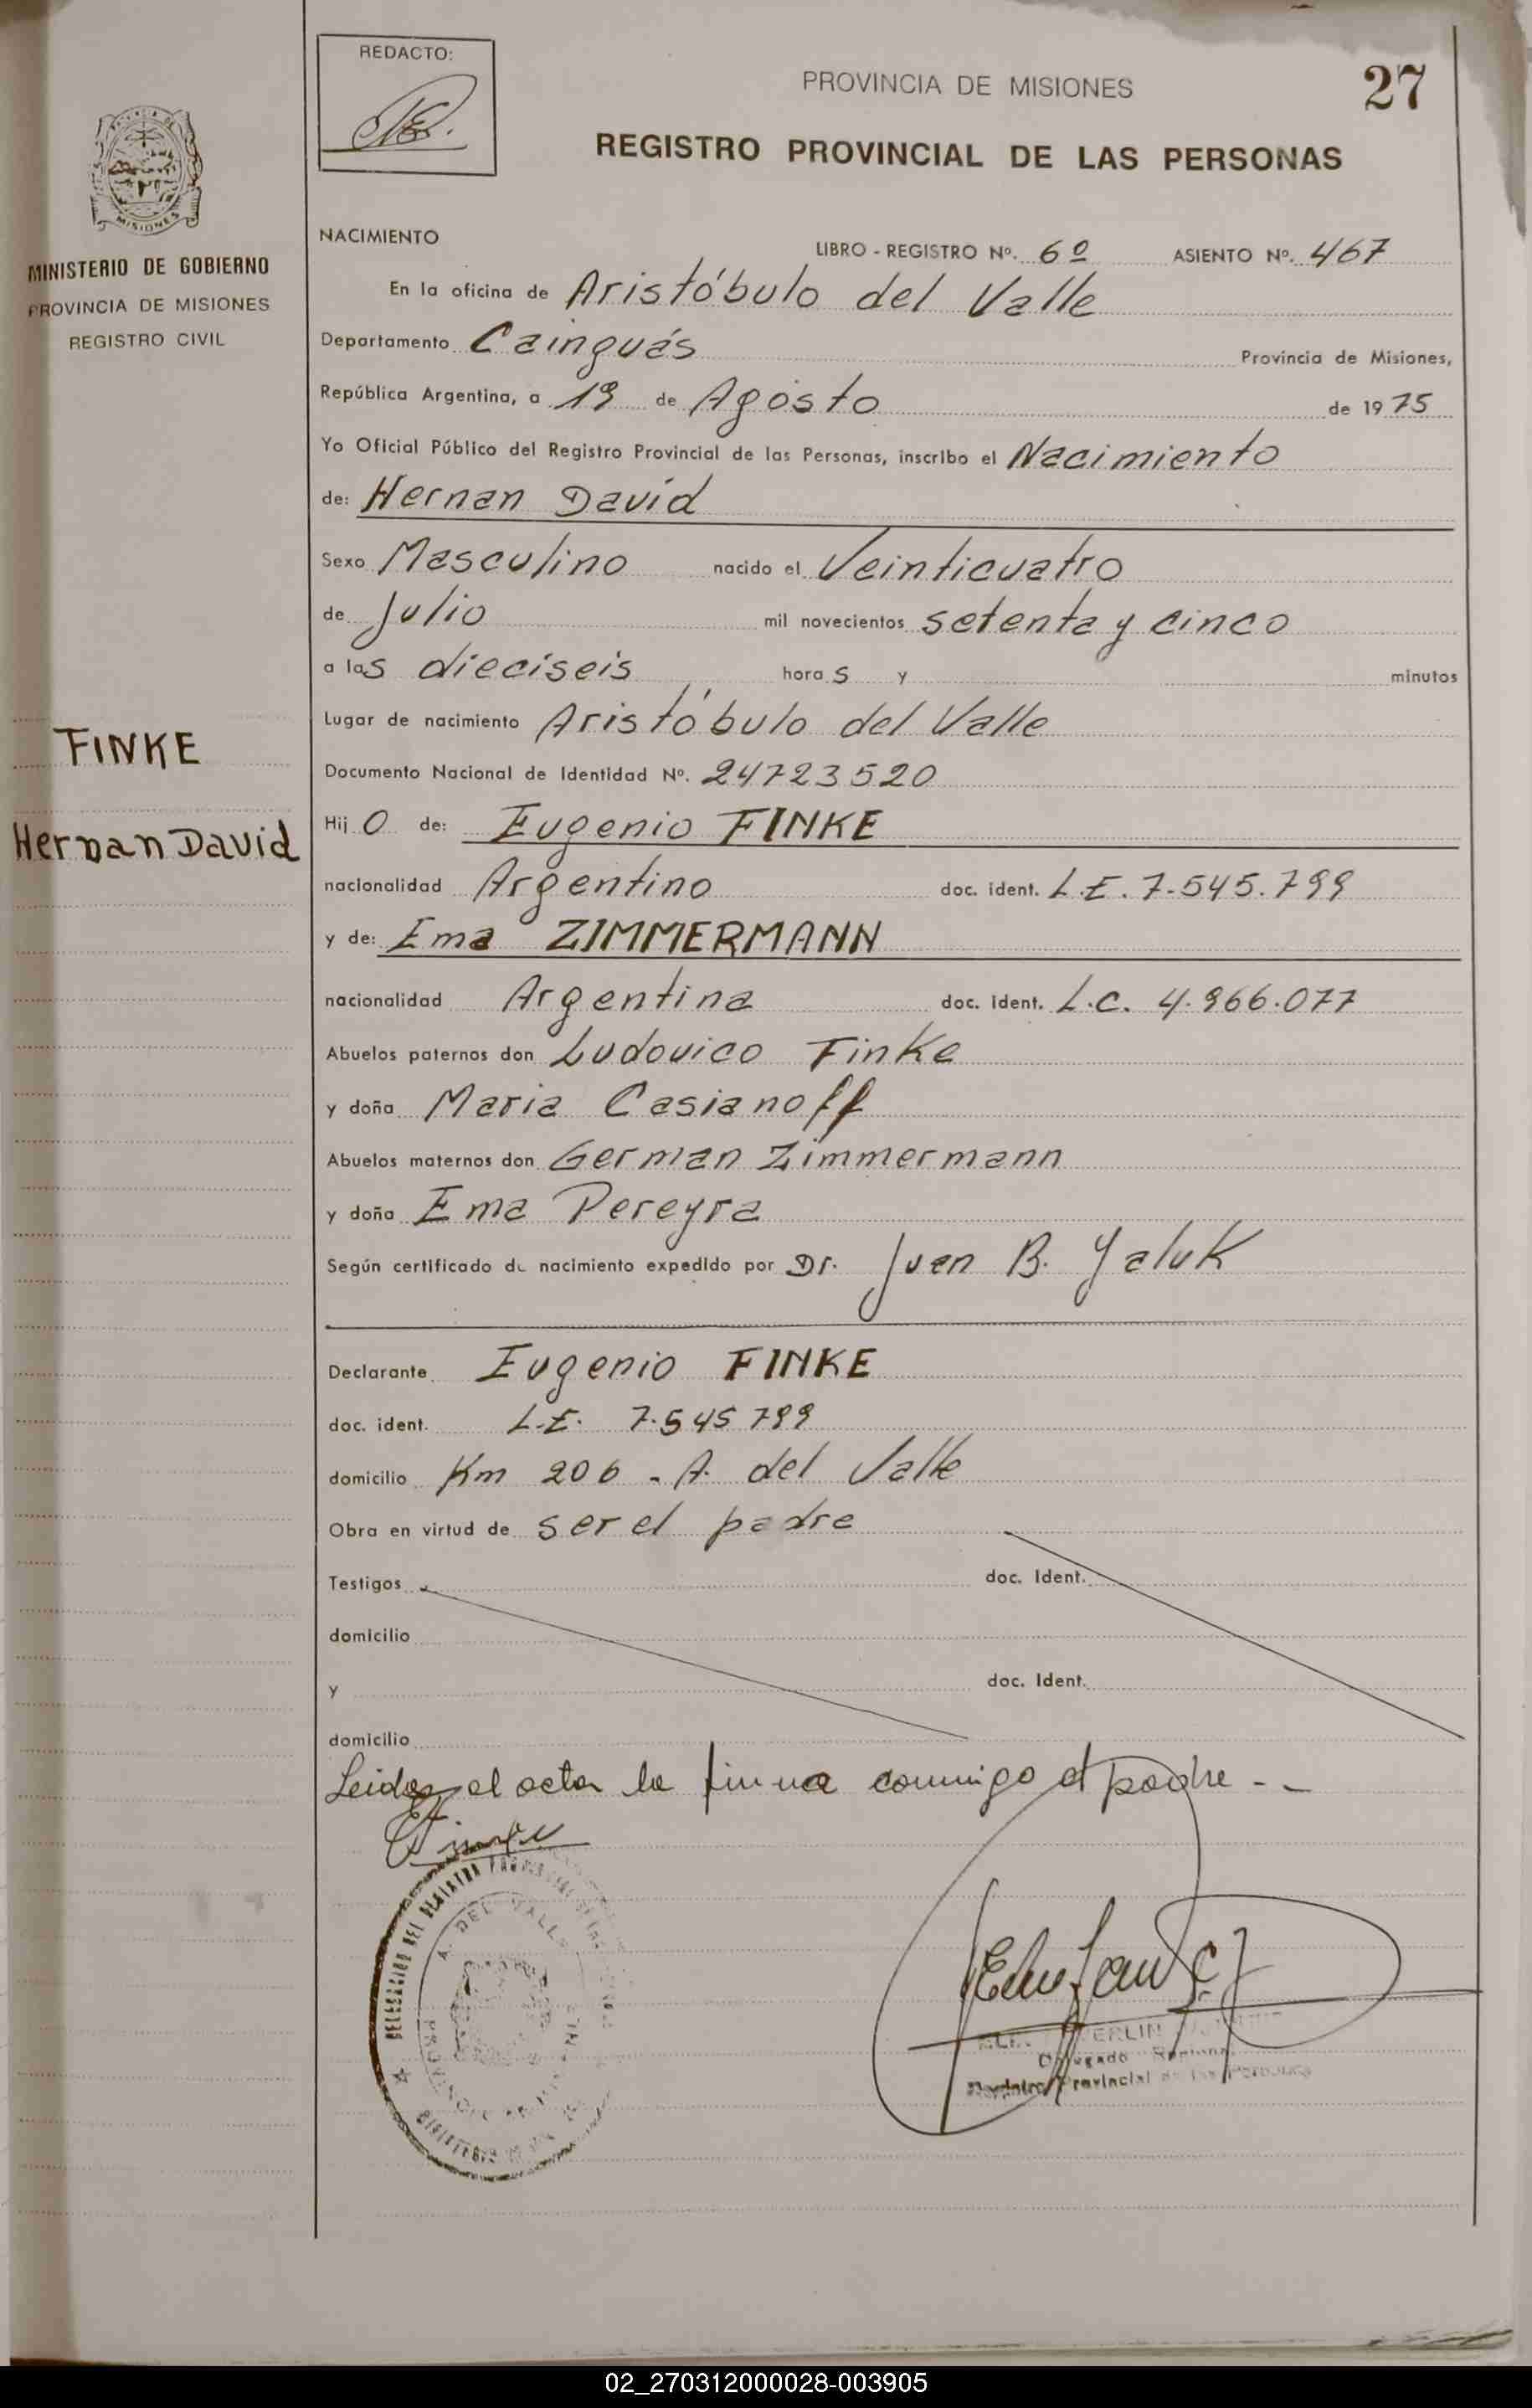 REDACTO:
PROVINCIA DE MISIONES
27
REGISTRO PROVINCIAL DE LAS PERSONAS
MISIONES
MINISTERIO DE GOBIERNO
PROVINCIA DE MISIONES
REGISTRO CIVIL
NACIMIENTO
LIBRO - REGISTRO Nº. 6º ASIENTO Nº. 467
En la oficina de Aristóbulo del Valle
Departamento Cainguás Provincia de Misiones,
República Argentina, a 19 de Agosto de 1975
Yo Oficial Público del Registro Provincial de las Personas, inscribo el Nacimiento
de: Hernan David
Sexo Masculino nacido el Veinticuatro
de Julio mil novecientos setenta y cinco
a las dieciseis horas y minutos
Lugar de nacimiento Aristóbulo del Valle
FINKE
Documento Nacional de Identidad Nº. 24723520
Hernan David
Hijo de: Eugenio FINKE
nacionalidad Argentino doc. ident. L.E. 7.545.799
y de: Ema ZIMMERMANN
nacionalidad Argentina doc. ident. L.C. 4.966.077
Abuelos paternos don Ludovico Finke
y doña Maria Casianoff
Abuelos maternos don German Zimmermann
y doña Ema Pereyra
Según certificado de nacimiento expedido por Dr. Juan B. Yaluk
Declarante Eugenio FINKE
doc. ident. L.E. 7.545 799
domicilio Km 206 - A. del Valle
Obra en virtud de ser el padre
Testigos doc. Ident.
domicilio
y doc. Ident.
domicilio
Leida el acta la firma conmigo el padre - -
DELEGACION DEL REGISTRO PROVINCIAL DE LAS
A. DEL VALLE
PROVINCIA
Delegado Regional
Registro Provincial de las Personas
02_270312000028-003905